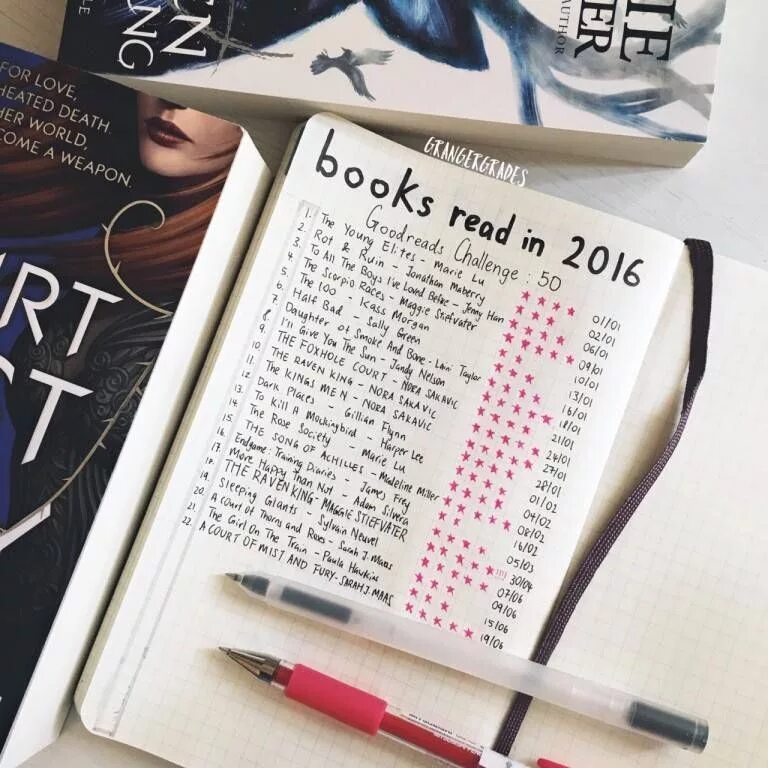 LE
NG
EN
AUTHOR
IE
ER
FOR LOVE,
HEATED DEATH.
HER WORLD,
COME A WEAPON.
RT
T
GRANGERGRADES
books read in 2016
Goodreads Challenge : 50
1. The Young Elites - Marie Lu 01/01
2. Rot & Ruin - Jonathan Maberry 02/01
3. To All The Boys I've Loved Before - Jenny Han 06/01
4. The Scorpio Races - Maggie Stiefvater 09/01
5. The 100 - Kass Morgan 10/01
6. Half Bad - Sally Green 13/01
7. Daughter of Smoke And Bone - Laini Taylor 16/01
8 I'll Give You The Sun - Jandy Nelson 18/01
9. THE FOXHOLE COURT - NORA SAKAVIC 21/01
10. THE RAVEN KING - NORA SAKAVIC 24/01
11. The KINGS MEN - NORA SAKAVIC 27/01
12. Dark Places - Gillian Flynn 28/01
13. To Kill A Mockingbird - Harper Lee 01/02
14. The Rose Society - Marie Lu 04/02
15. THE SONG OF ACHILLES - Madeline Miller 08/02
16. Endgame: Training Diaries - James Frey 16/02
17. More Happy Than Not - Adam Silvera 05/03
18. THE RAVEN KING - MAGGIE STIEFVATER !!! 30/04
19. Sleeping Giants - Sylvain Neuvel 07/06
20. A Court of Thorns and Roses - Sarah J. Maas 09/06
21. The Girl On The Train - Paula Hawkins 15/06
22. A COURT OF MIST AND FURY - SARAH J. MAAS 19/06